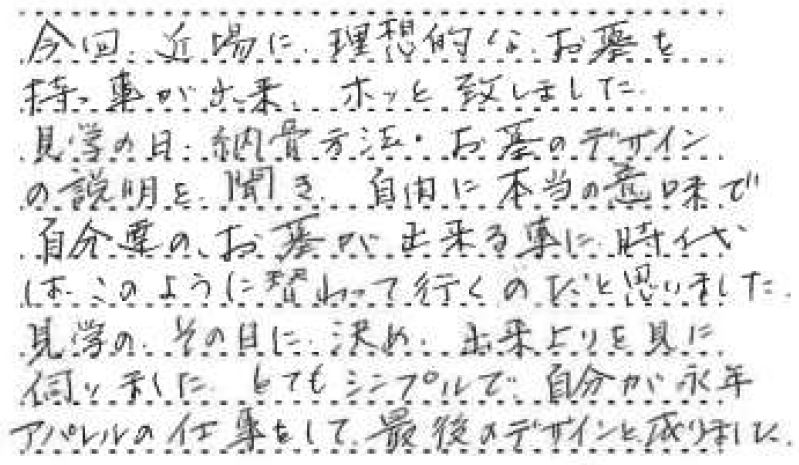 今回、近場に、理想的なお墓を
持つ事が出来、ホッと致しました。
見学の日、納骨方法・お墓のデザイン
の説明を聞き、自由に本当の意味で
自分達の、お墓が出来る事に、時代
は、このように替わって行くのだと思いました。
見学の、その日に、決め、出来上りを見に
伺いました。とてもシンプルで、自分が永年
アパレルの仕事をして、最後のデザインと成りました。